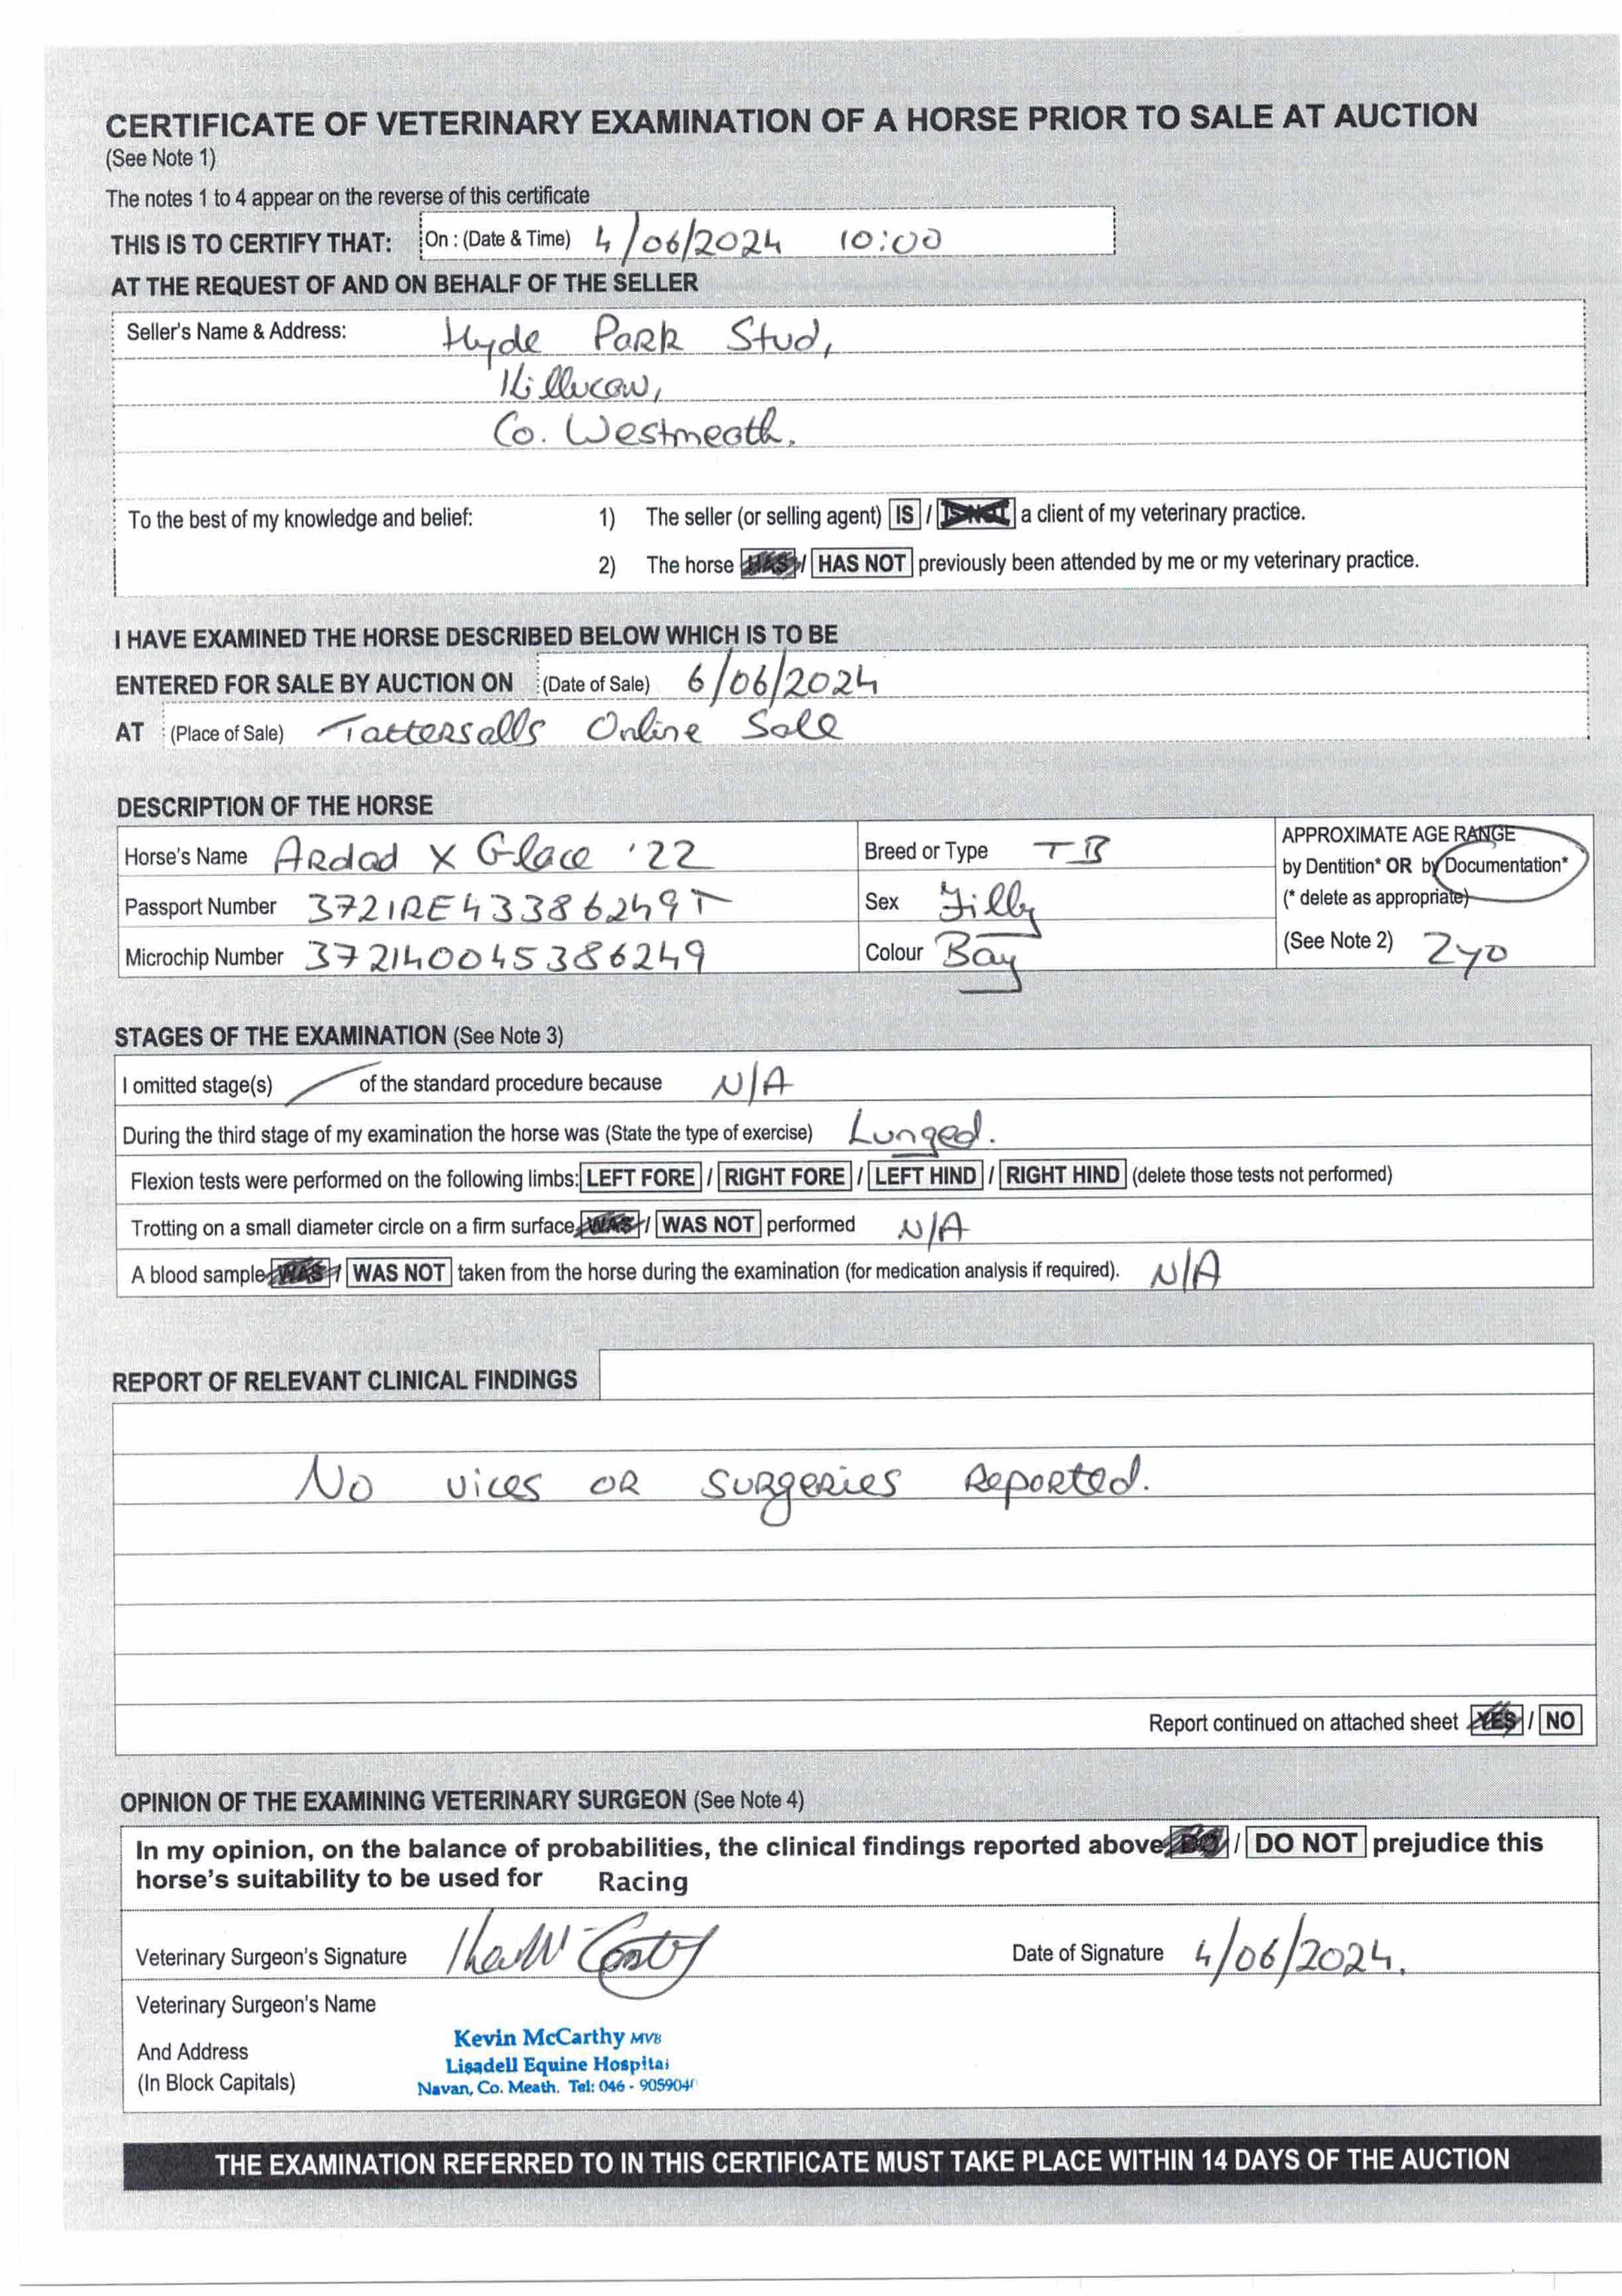 CERTIFICATE OF VETERINARY EXAMINATION OF A HORSE PRIOR TO SALE AT AUCTION
(See Note 1)
The notes 1 to 4 appear on the reverse of this certificate
THIS IS TO CERTIFY THAT: On : (Date & Time) 4/06/2024 10:00
AT THE REQUEST OF AND ON BEHALF OF THE SELLER
Seller's Name & Address: Hyde Park Stud,
Killucan,
Co. Westmeath.
To the best of my knowledge and belief: 1) The seller (or selling agent) IS / IS NOT a client of my veterinary practice.
2) The horse HAS / HAS NOT previously been attended by me or my veterinary practice.
I HAVE EXAMINED THE HORSE DESCRIBED BELOW WHICH IS TO BE
ENTERED FOR SALE BY AUCTION ON (Date of Sale) 6/06/2024
AT (Place of Sale) Tattersalls Online Sale
DESCRIPTION OF THE HORSE
Horse's Name Ardad X Glace '22 Breed or Type TB APPROXIMATE AGE RANGE
by Dentition* OR by Documentation*
Passport Number 372IRE43386249T Sex Filly (* delete as appropriate)
Microchip Number 372140045386249 Colour Bay (See Note 2) 2yo
STAGES OF THE EXAMINATION (See Note 3)
I omitted stage(s) / of the standard procedure because N/A
During the third stage of my examination the horse was (State the type of exercise) Lunged.
Flexion tests were performed on the following limbs: LEFT FORE / RIGHT FORE / LEFT HIND / RIGHT HIND (delete those tests not performed)
Trotting on a small diameter circle on a firm surface WAS / WAS NOT performed N/A
A blood sample WAS / WAS NOT taken from the horse during the examination (for medication analysis if required). N/A
REPORT OF RELEVANT CLINICAL FINDINGS
No vices or surgeries reported.
Report continued on attached sheet YES / NO
OPINION OF THE EXAMINING VETERINARY SURGEON (See Note 4)
In my opinion, on the balance of probabilities, the clinical findings reported above DO / DO NOT prejudice this
horse's suitability to be used for Racing
Veterinary Surgeon's Signature Date of Signature 4/06/2024.
Veterinary Surgeon's Name
Kevin McCarthy MVB
And Address
Lisadell Equine Hospital
(In Block Capitals)
Navan, Co. Meath. Tel: 046 - 905904
THE EXAMINATION REFERRED TO IN THIS CERTIFICATE MUST TAKE PLACE WITHIN 14 DAYS OF THE AUCTION